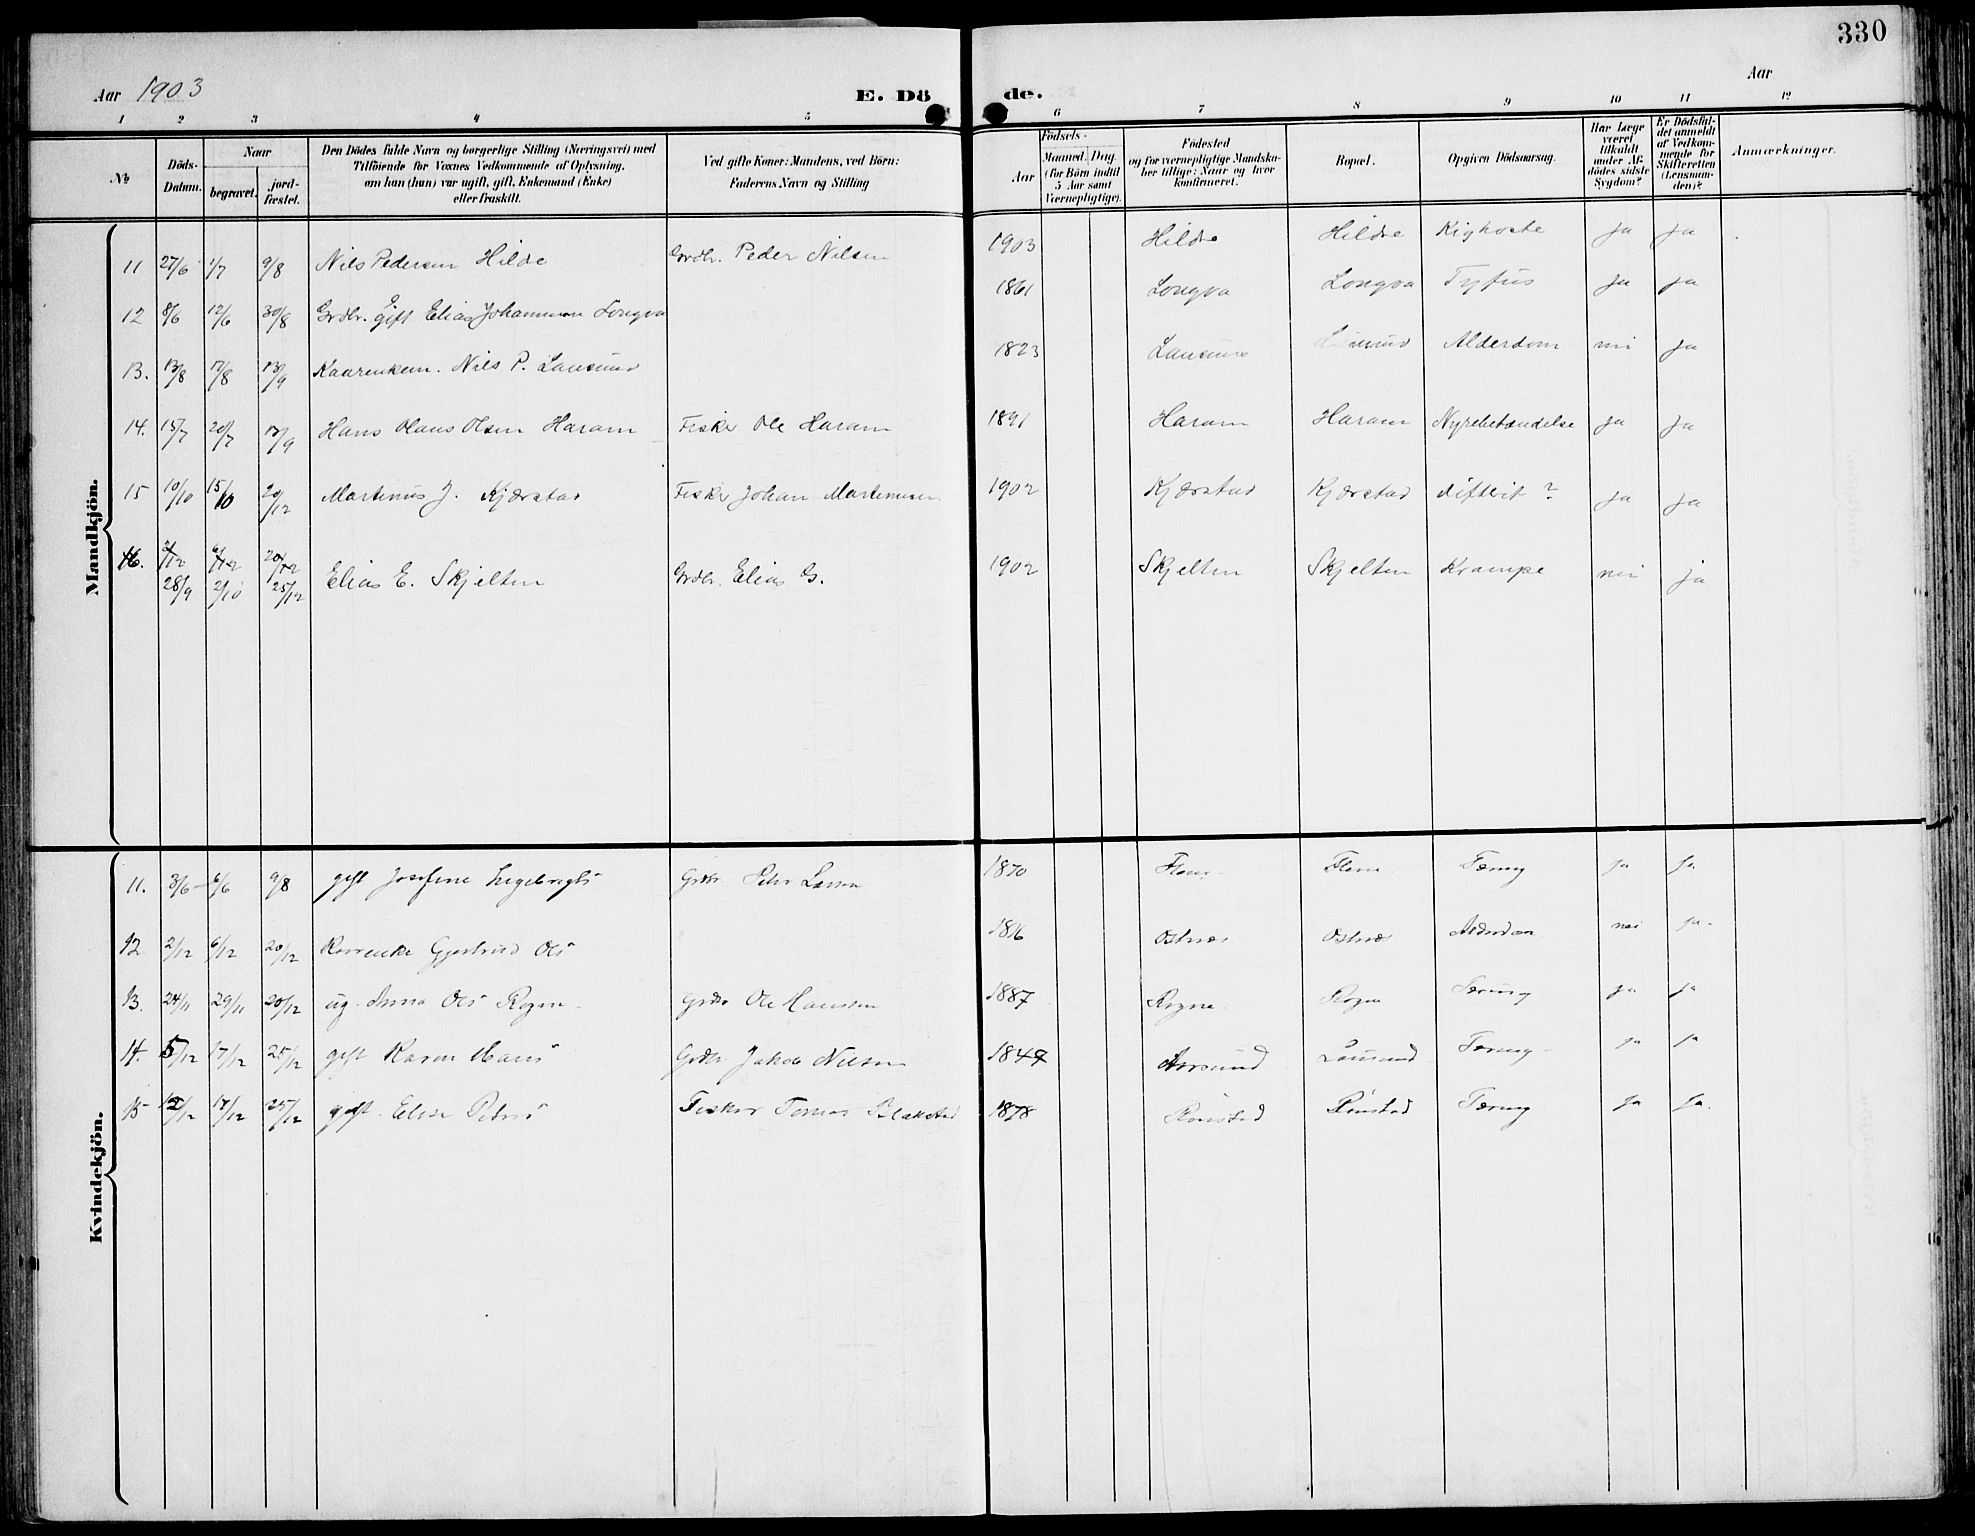 330
Aar 1903
E. Dö de.
Aar
1 2 3 4 5 6 7 8 9 10 11 12
No.
Döds-Datum.
Naar
begravet.
jord-fæstet.
Den Dödes fulde Navn og borgerlige Stilling (Næringsvei) med
Tilföiende for Voxnes Vedkommende af Oplysning,
om han (hun) var ugift, gift, Enkemand (Enke)
eller fraskilt.
Ved gifte Koner: Mandens, ved Börn:
Faderens Navn og Stilling
Födsels-
Aar
Maaned. Dag.
(for Börn indtil
5 Aar samt
Værnepligtige).
Födested
og for værnepligtige Mandska-
ber tillige: Naar og hvor
konfirmeret.
Bopæl.
Opgiven Dödsaarsag.
Har Læge
været
tilkaldt
under Af-
dödes sidste
Sygdom?
Er Dödsfal-
det anmeldt
af Vedkom-
mende for
Skifteretten
(Lensman-
den)?
Anmærkninger.
Mandkjön.
11 27/6 1/7 9/8 Nils Pedersen Hilde Grdbr. Peder Nilsen 1903 Hildre Hildre Kighoste ja ja
12 8/6 12/6 30/8 Grdbr. gift Elias Johannesen Longva 1861 Longva Longva Tyfus ja ja
13. 13/8 17/8 13/9 Kaarenkem. Nils P. Lausund 1823 Lausund Lausund Alderdom nei ja
14. 15/7 20/7 13/9 Hans Olaus Olsen Haram Fisker Ole Haram 1891 Haram Haram Nyrebetændelse ja ja
15 10/10 15/10 20/12 Martinus J. Kjærstad Fisker Johan Martinusen 1902 Kjærstad Kjærstad difterit ? ja ja
16. 2/12 6/12 20/12
28/9 2/10 25/12 Elias E. Skjelten Grdbr. Elias G. 1902 Skjelten Skjelten Krampe nei ja
Kvindekjön.
11. 3/6 6/6 9/8 gift Josefine Ingebrigts Grdbr. Peter Larsen 1870 Flem Flem Tæring ja ja
12 2/12 6/12 20/12 Kaarenke Gjertrud Ols 1816 Østnes Østnes Alderdom nei ja
13. 24/11 29/11 20/12 ug. Anna Ols Rogne Grdbr Ole Hanssen 1887 Rogne Rogne Tæring ja ja
14. 5/12 17/12 25/12 gift Karen Hans Grdbr. Jakob Nilsen 1847 Aarsund Lausund Tæring ja ja
15 12/12 17/12 25/12 gift. Elise Peters Fisker Tomas Blakstad 1878 Rønstad Rønstad Tæring ja ja.